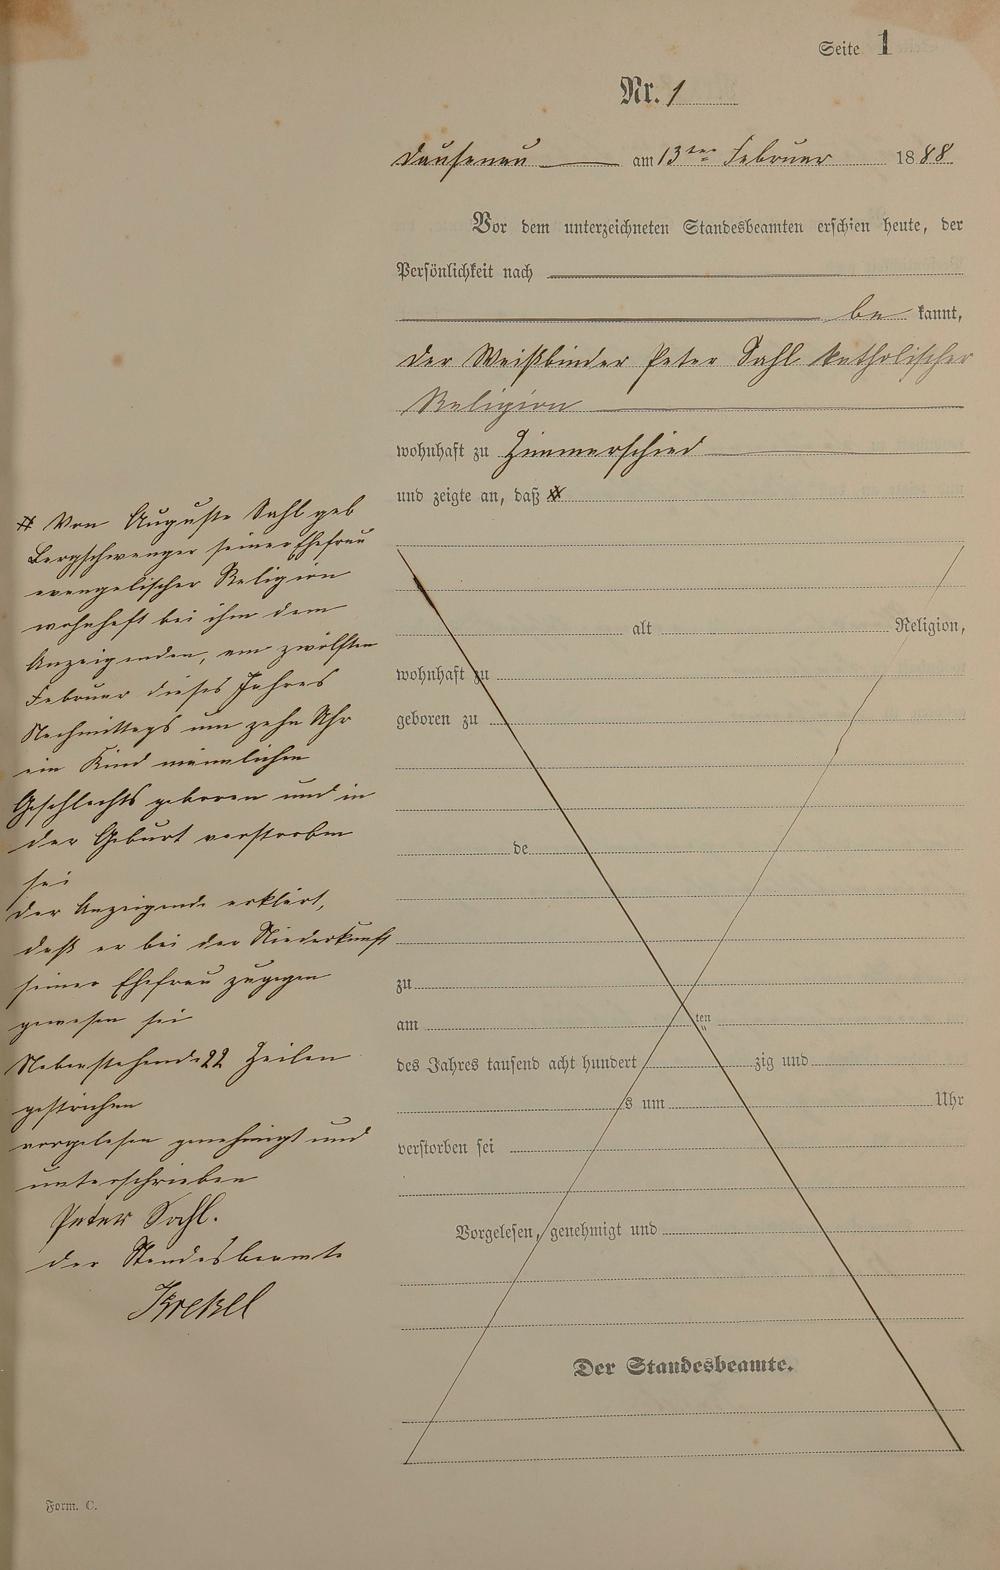 Seite 1
Nr. 1
Dausenau am 13ten Februar 1888
Vor dem unterzeichneten Standesbeamten erschien heute, der
Persönlichkeit nach
be kannt,
der Weißbinder Peter Sahl katholischer
Religion
wohnhaft zu Zimmerschied
und zeigte an, daß #
alt Religion,
wohnhaft zu
geboren zu
de
zu
am ten
des Jahres tausend acht hundert zig und
s um Uhr
verstorben sei
Vorgelesen, genehmigt und
Der Standesbeamte.
# Von Auguste Sahl geb
Bergschwenger seiner Ehefrau
evangelischer Religion
wohnhaft bei ihm dem
Anzeigenden, am zwölften
Februar dieses Jahres
Nachmittags um zehn Uhr
ein Kind männlichen
Geschlechts geboren und in
der Geburt verstorben
sei
der Anzeigende erklärt,
daß er bei der Niederkunft
seiner Ehefrau zugegen
gewesen sei
Nebenstehende 22 Zeilen
gestrichen
vorgelesen genehmigt und
unterschrieben
Peter Sahl.
der Standesbeamte
Form. C.